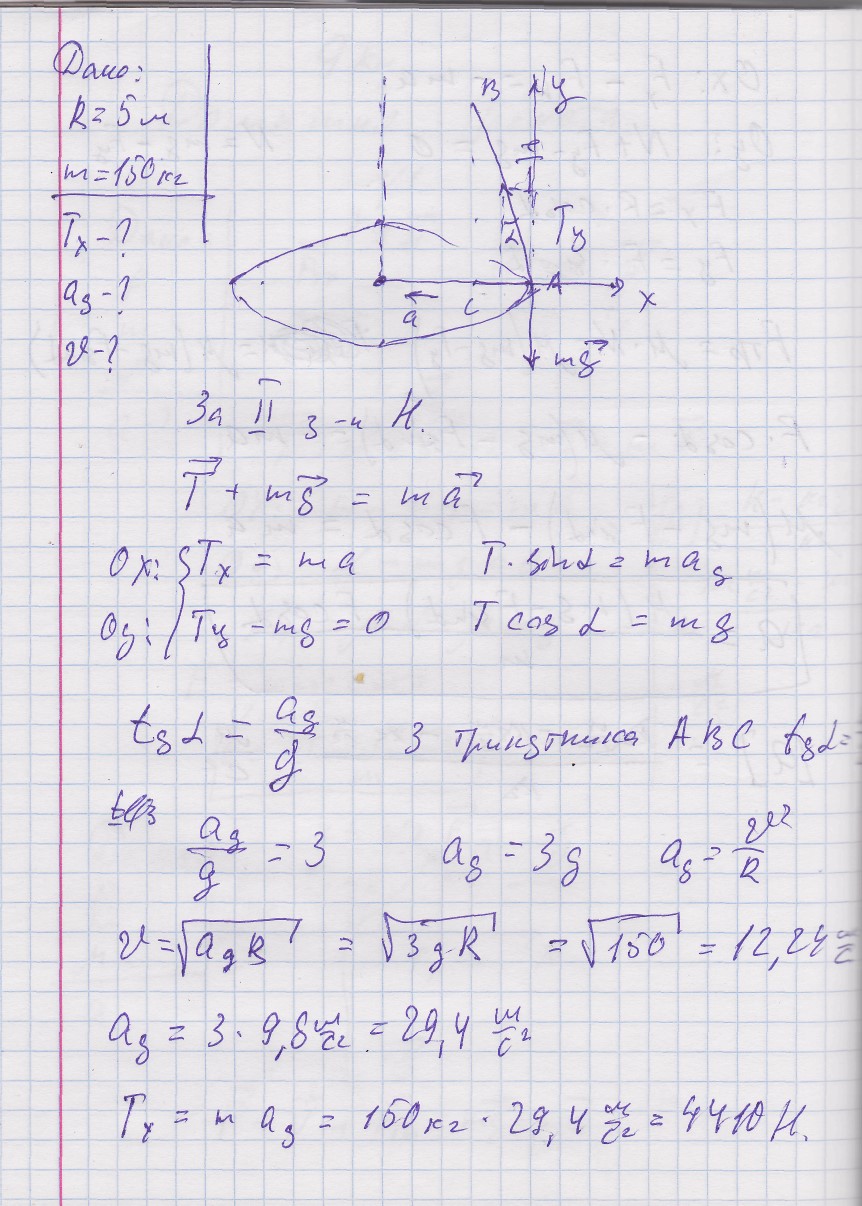 Дано:
R = 5 м
m = 150 кг
Tx - ?
ag - ?
v - ?
B
y
Ty
α
A
x
C
a
mg
За II з-н Н.
T + mg = ma
Ox: { Tx = ma T · sin α = m ag
Oy: { Ty - mg = 0 T cos α = mg
tg α = ag/g З трикутника ABC tg α =
ag/g = 3 ag = 3g ag = v²/R
v = √(ag R) = √(3gR) = √150 = 12,24 м/с
ag = 3 · 9,8 м/с² = 29,4 м/с²
Tx = m ag = 150 кг · 29,4 м/с² = 4410 Н.